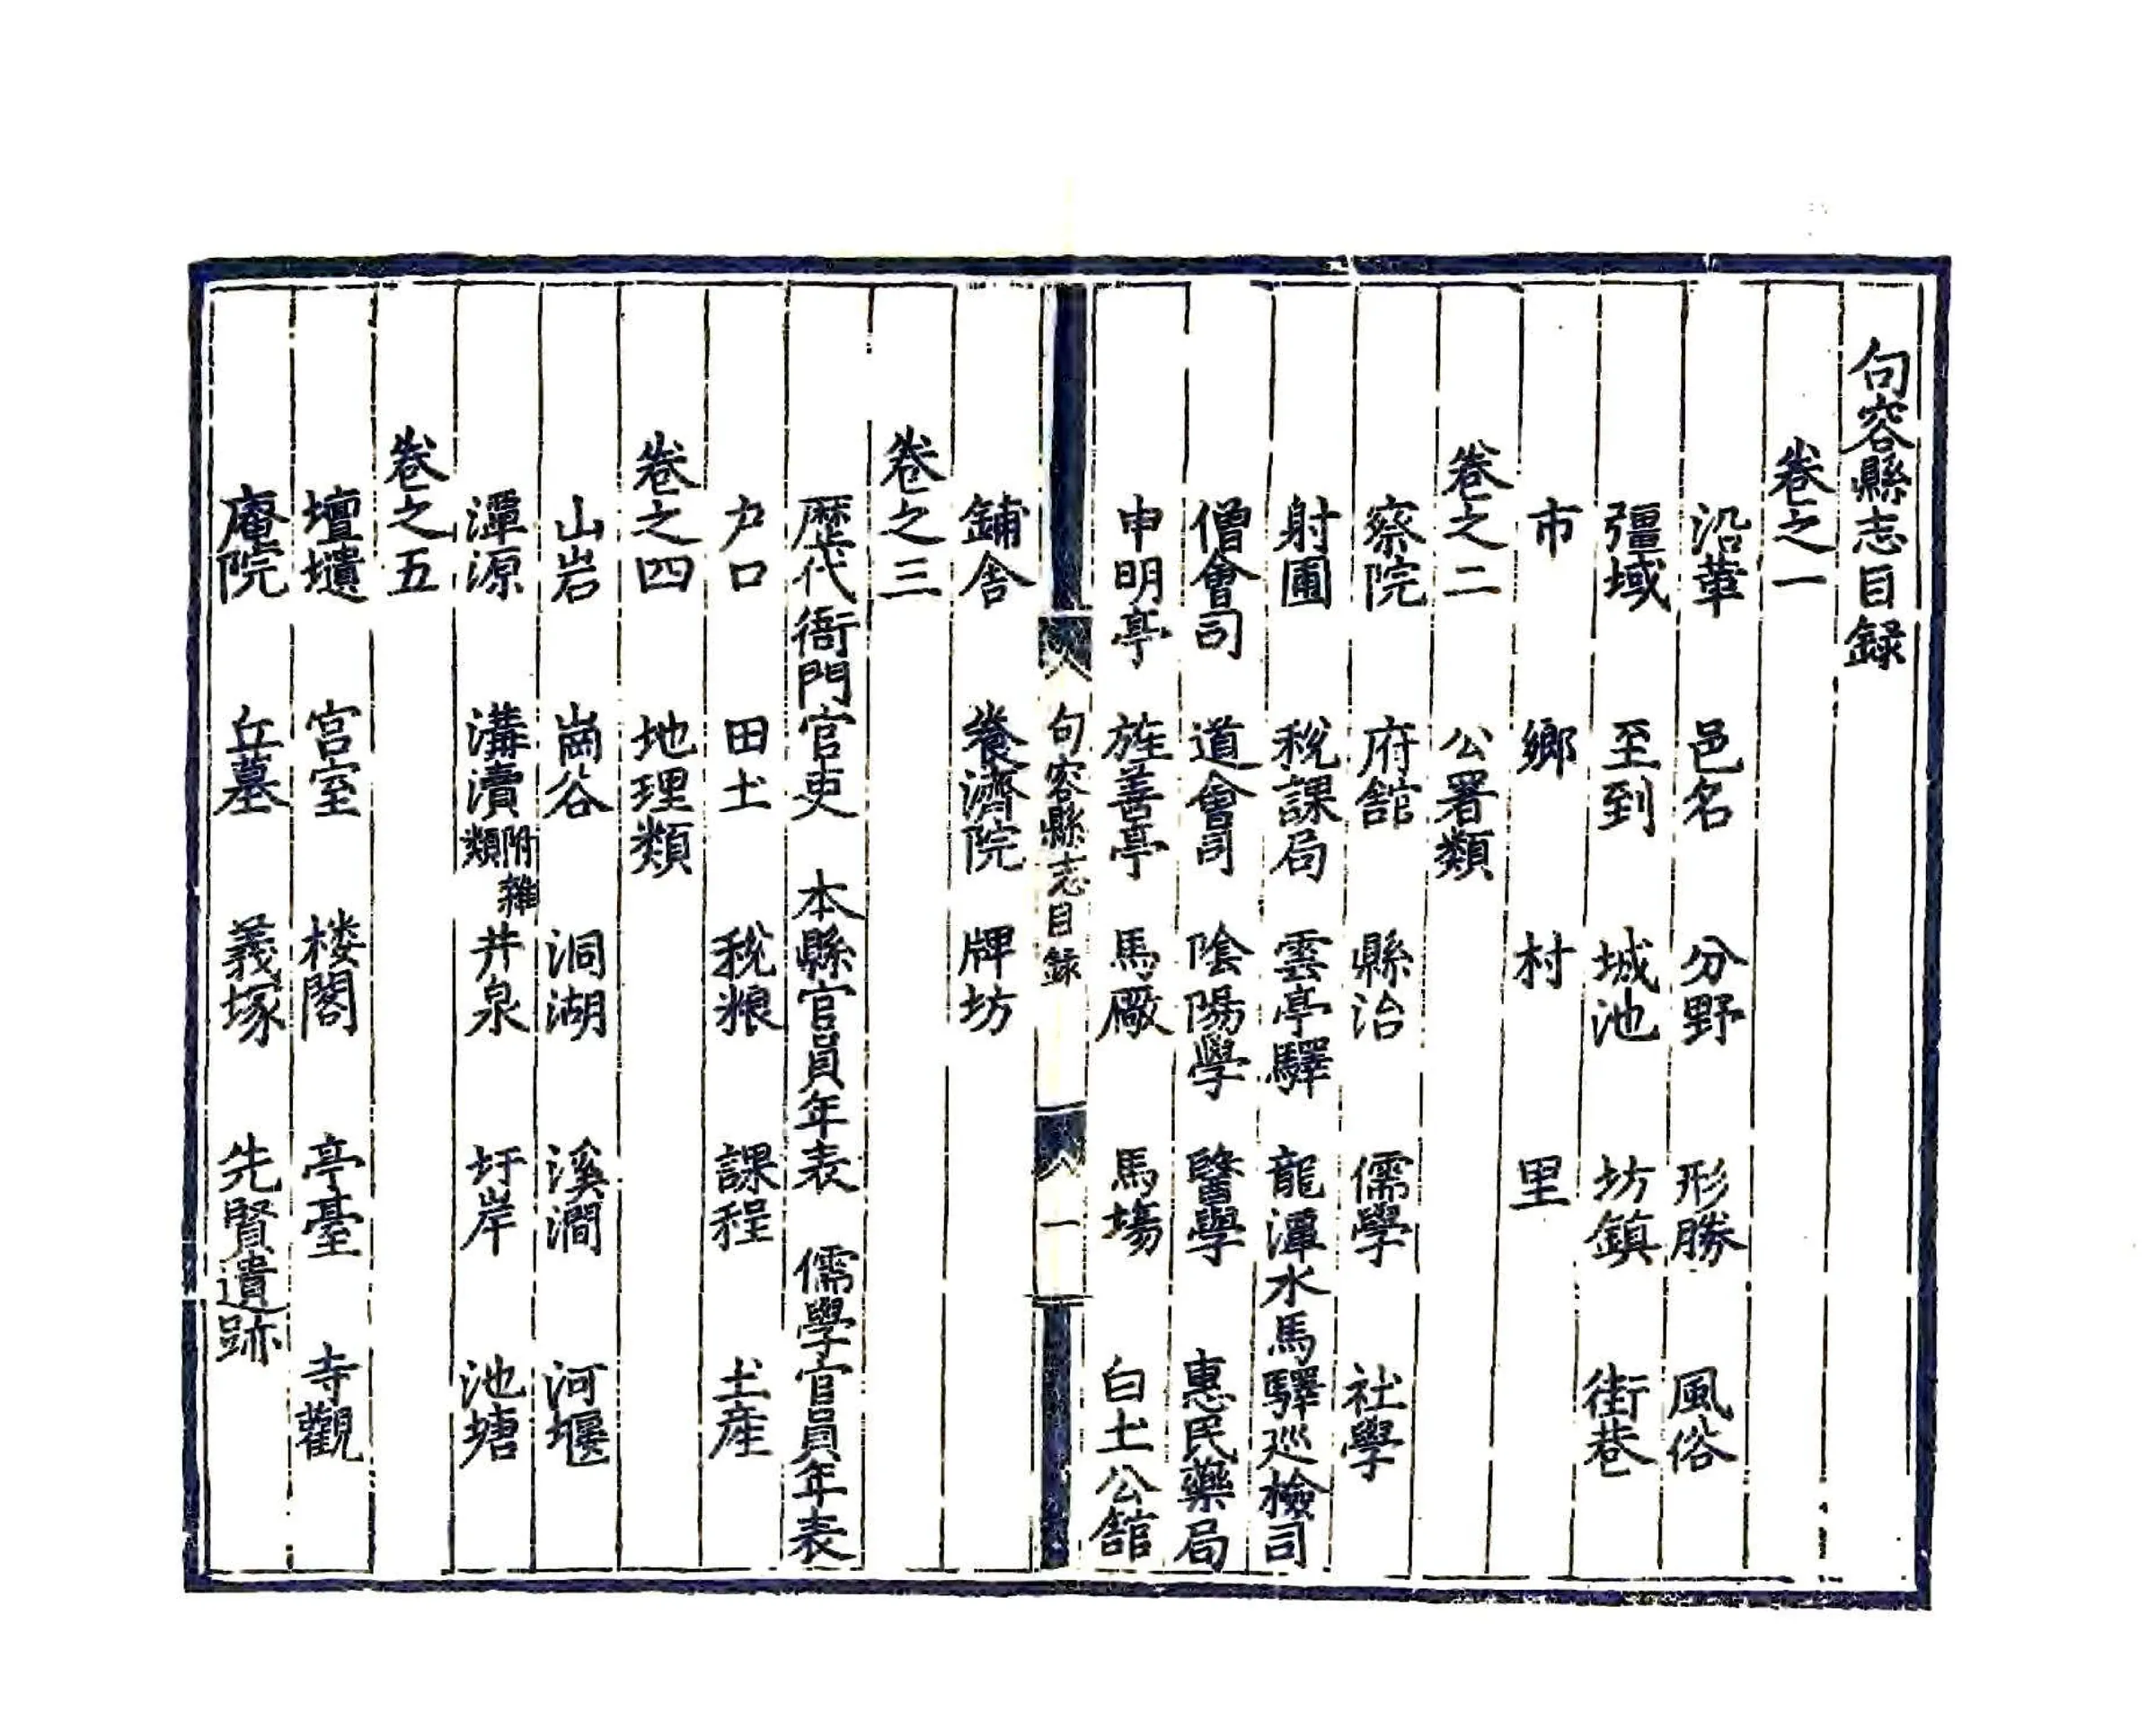 句容縣志目録
卷之一
沿革 邑名 分野 形勝 風俗
彊域 至到 城池 坊鎮 街巷
市 鄉 村 里
卷之二 公署類
察院 府舘 縣治 儒學 社學
射圃 稅課局 雲亭驛 龍潭水馬驛巡檢司
僧會司 道會司 陰陽學 醫學 惠民藥局
申明亭 旌善亭 馬廠 馬塲 白土公舘
句容縣志目録 一
鋪舎 養濟院 牌坊
卷之三
歷代衙門官吏 本縣官員年表 儒學官員年表
户口 田土 稅粮 課程 土產
卷之四 地理類
山岩 崗谷 洞湖 溪澗 河堰
潭源 溝瀆附雜類 井泉 圩岸 池塘
卷之五
壇壝 宫室 楼閣 亭臺 寺觀
庵院 丘墓 義塚 先賢遺跡